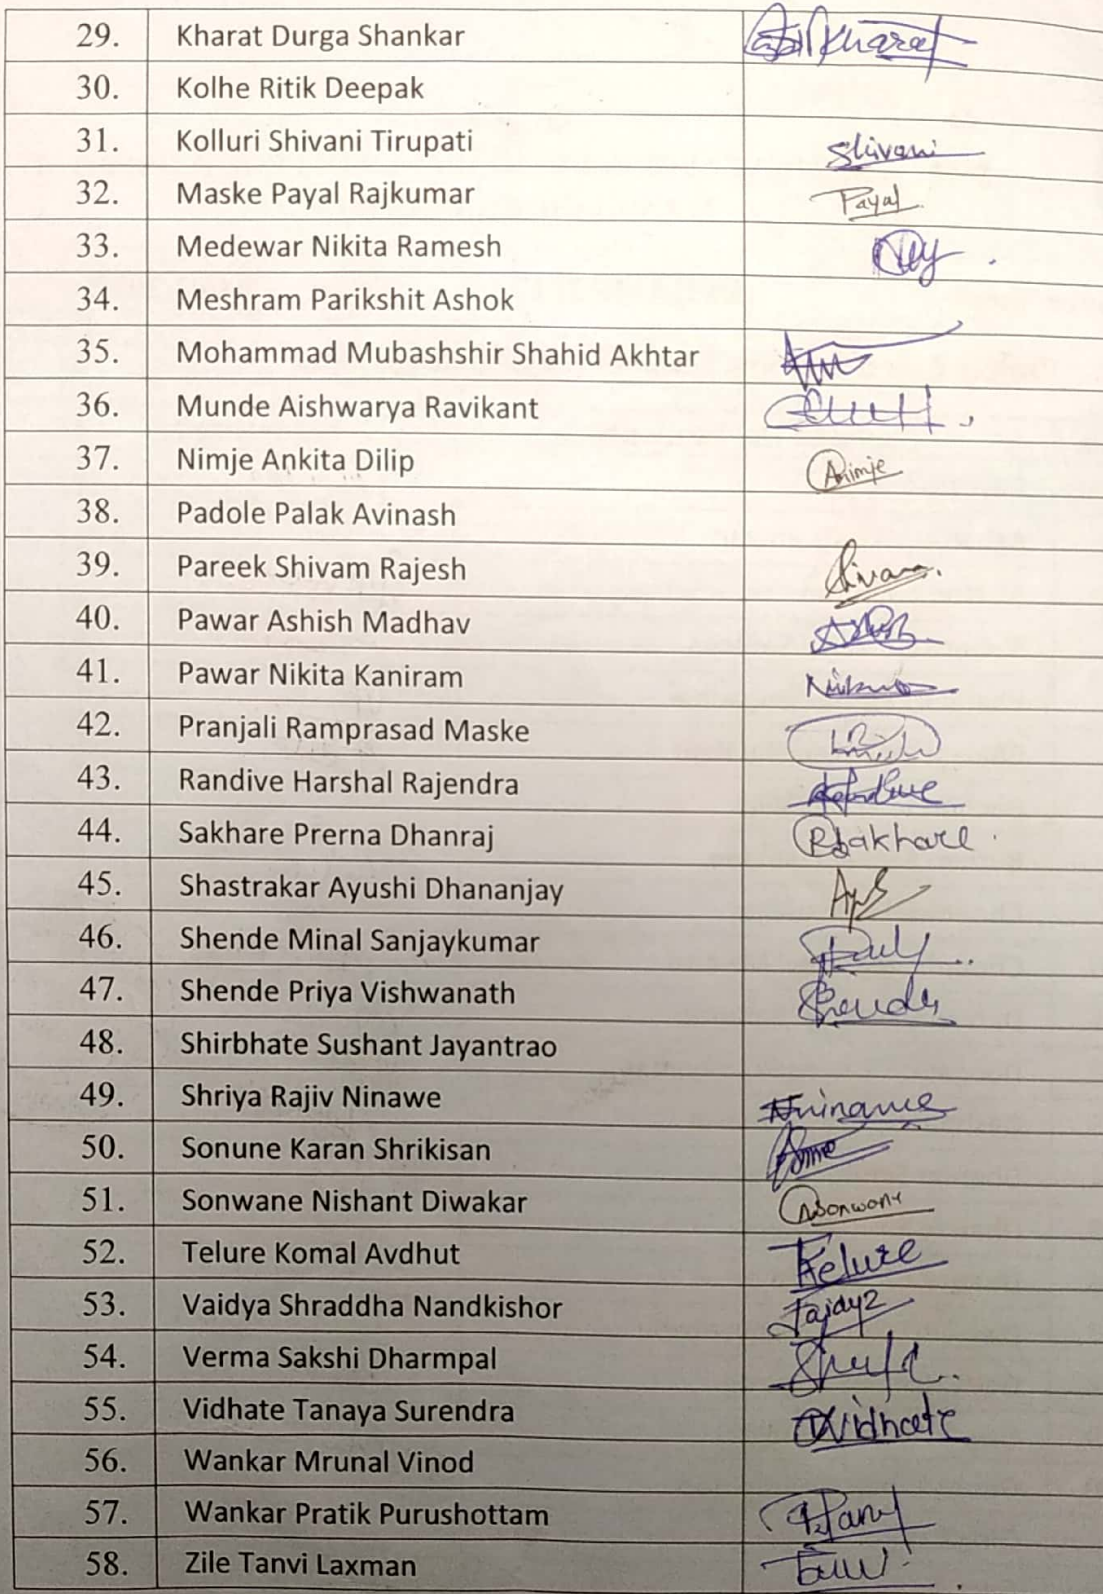 29. Kharat Durga Shankar Kharat
30. Kolhe Ritik Deepak
31. Kolluri Shivani Tirupati Shivani
32. Maske Payal Rajkumar Payal
33. Medewar Nikita Ramesh
34. Meshram Parikshit Ashok
35. Mohammad Mubashshir Shahid Akhtar
36. Munde Aishwarya Ravikant
37. Nimje Ankita Dilip Animje
38. Padole Palak Avinash
39. Pareek Shivam Rajesh Shivam.
40. Pawar Ashish Madhav
41. Pawar Nikita Kaniram
42. Pranjali Ramprasad Maske
43. Randive Harshal Rajendra
44. Sakhare Prerna Dhanraj PSakhare
45. Shastrakar Ayushi Dhananjay
46. Shende Minal Sanjaykumar
47. Shende Priya Vishwanath Shende
48. Shirbhate Sushant Jayantrao
49. Shriya Rajiv Ninawe
50. Sonune Karan Shrikisan
51. Sonwane Nishant Diwakar NSonwane
52. Telure Komal Avdhut Telure
53. Vaidya Shraddha Nandkishor
54. Verma Sakshi Dharmpal
55. Vidhate Tanaya Surendra TVidhate
56. Wankar Mrunal Vinod
57. Wankar Pratik Purushottam
58. Zile Tanvi Laxman